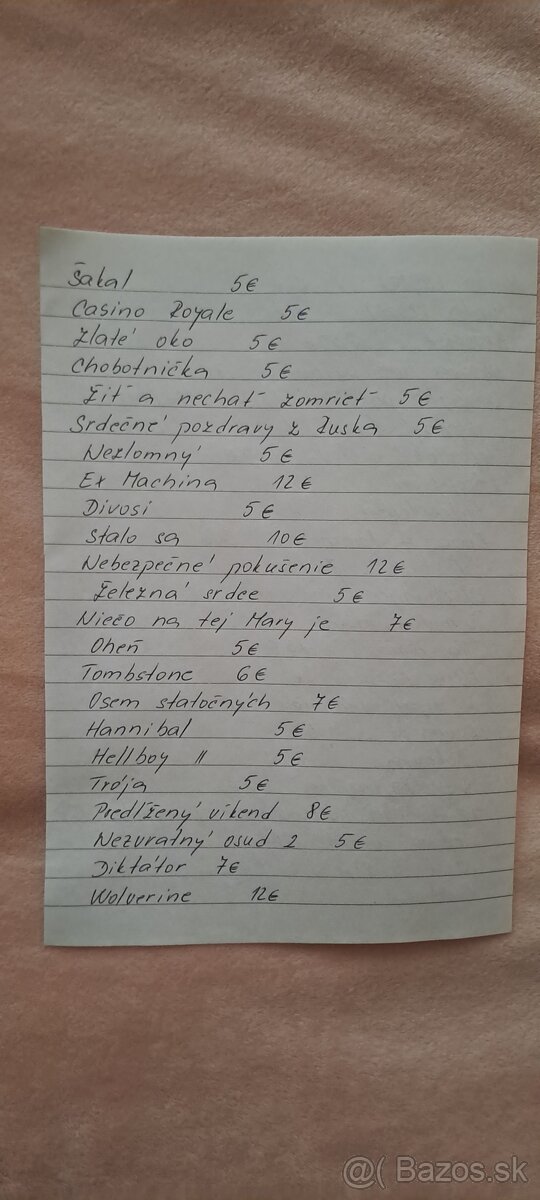 Šakal 5€
Casino Royale 5€
Zlaté oko 5€
Chobotnička 5€
Žiť a nechať zomrieť 5€
Srdečné pozdravy z Ruska 5€
Nezlomný 5€
Ex Machina 12€
Divosi 5€
Stalo sa 10€
Nebezpečné pokušenie 12€
Železná srdce 5€
Niečo na tej Mary je 7€
Oheň 5€
Tombstone 6€
Osem statočných 7€
Hannibal 5€
Hellboy II 5€
Trója 5€
Predĺžený víkend 8€
Nezvratný osud 2 5€
Diktátor 7€
Wolverine 12€
@( Bazos.sk